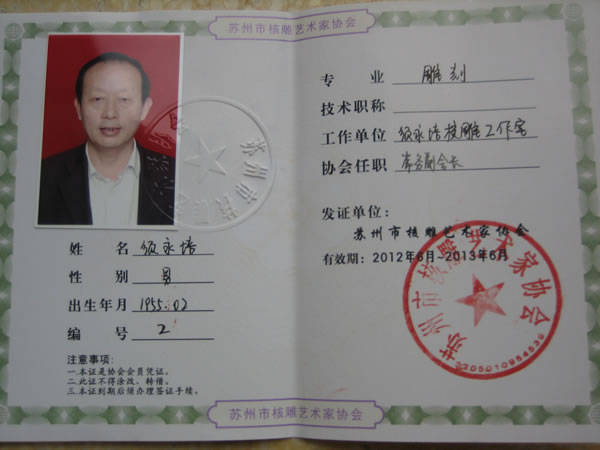 苏州市核雕艺术家协会
姓 名 须永培
性 别 男
出生年月 1955.02
编 号 2
注意事项:
一.本证是协会会员凭证。
二.此证不得涂改、转借。
三.本证到期后续办理签证手续。
苏州市核雕艺术家协会
专 业 雕刻
技术职称
工作单位 须永培核雕工作室
协会任职 常务副会长
发证单位:
苏州市核雕艺术家协会
有效期: 2012年6月-2013年6月
苏州市核雕艺术家协会
苏州市核雕